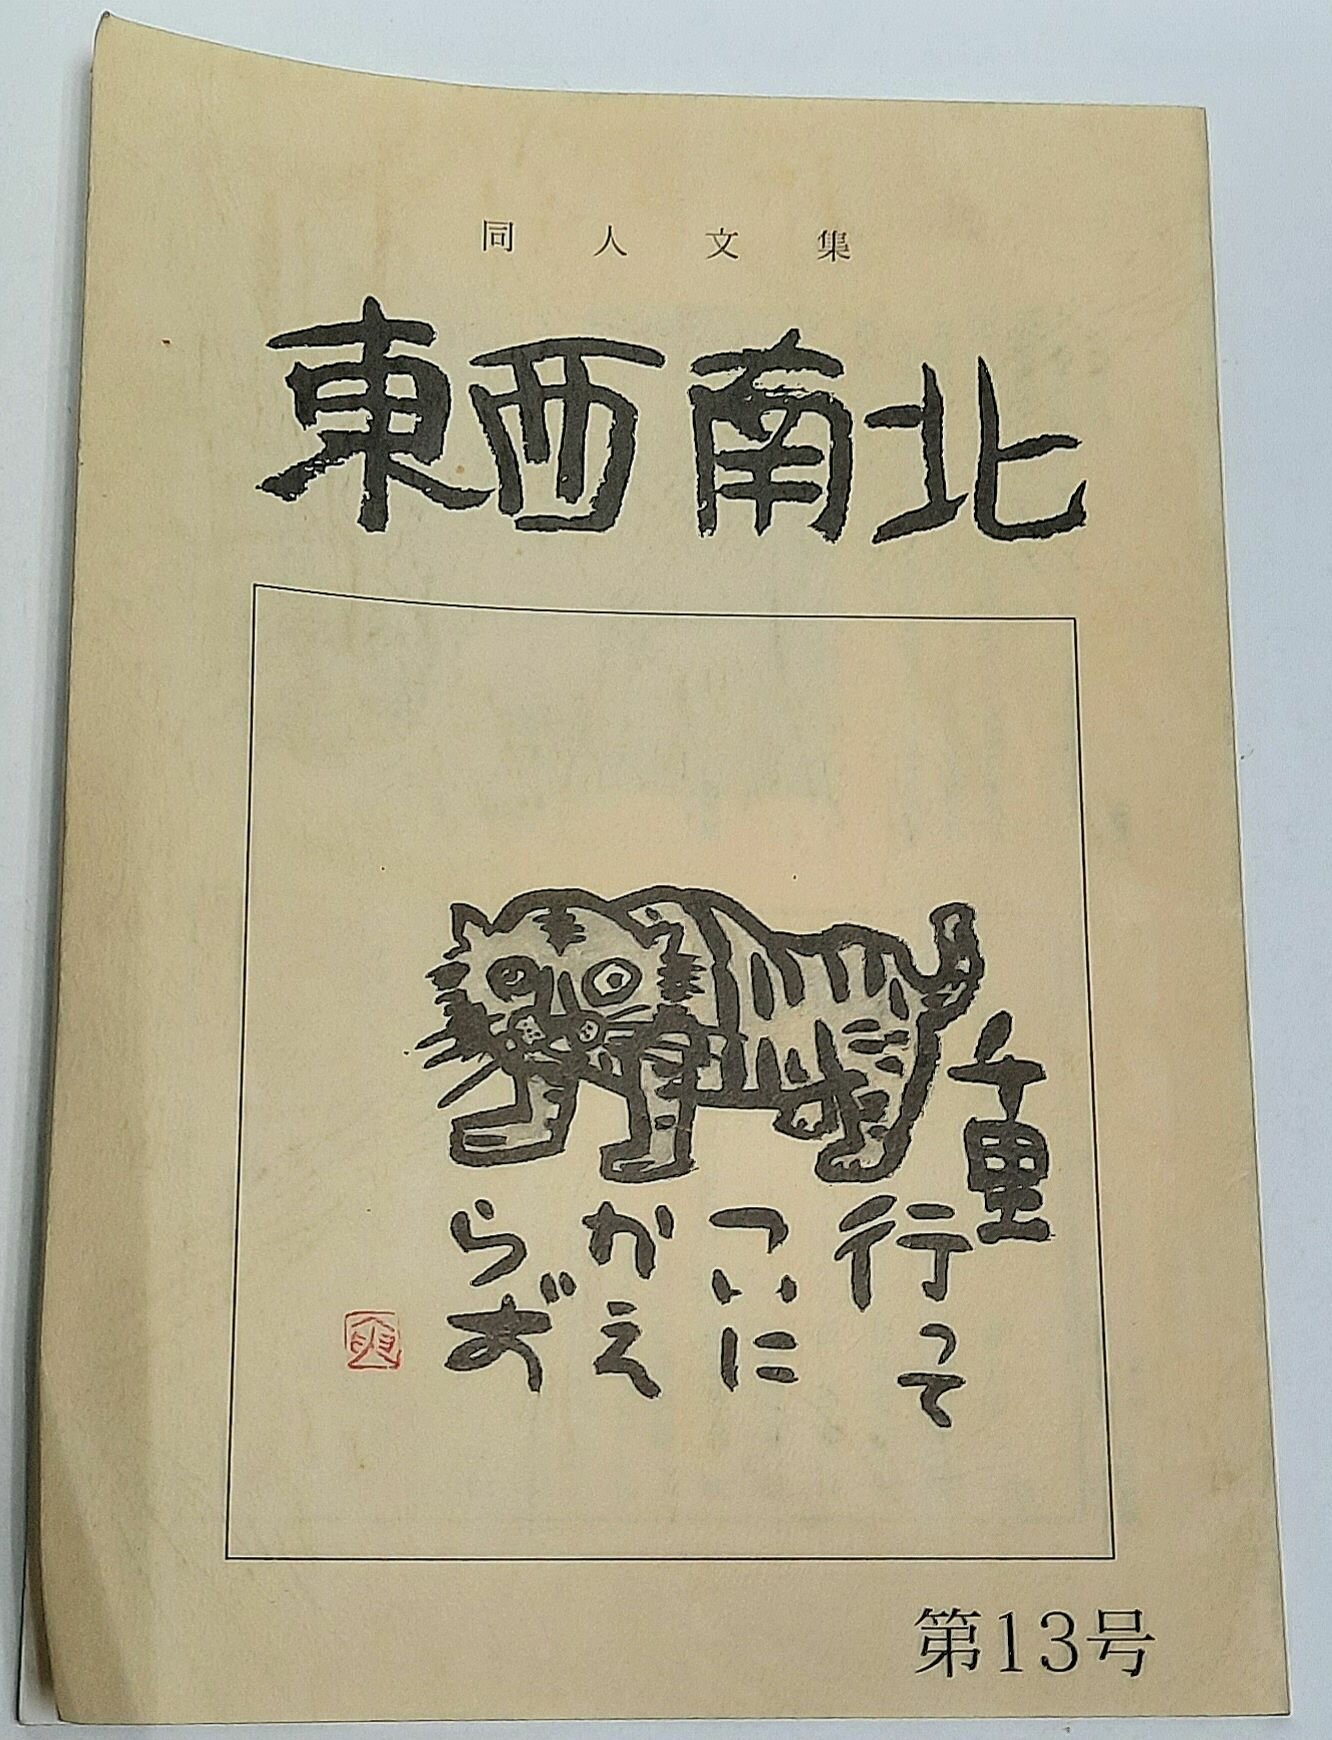 同人文集
東西南北
千里
行って
ついに
かえ
らず
第13号